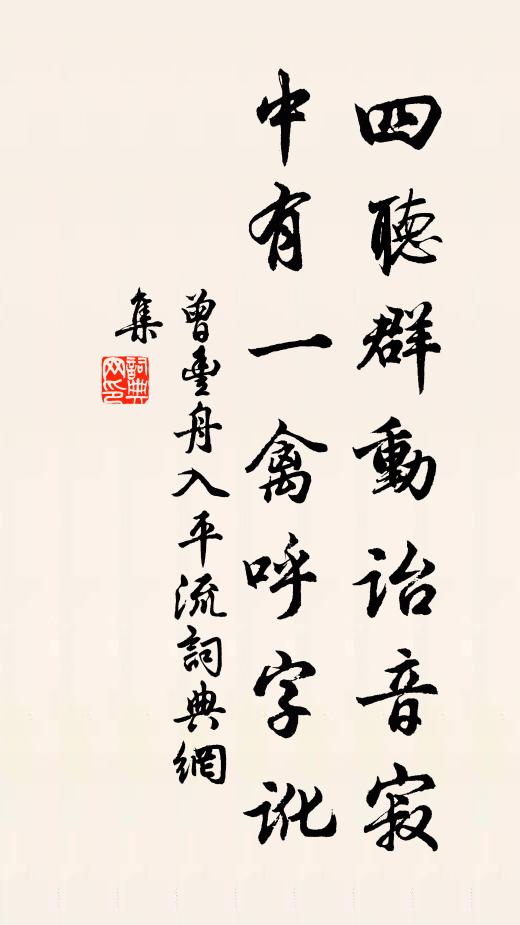 四聽群動詒音寂
中有一禽呼字訛
曾豐舟入平流詞典網
集
詞典網印